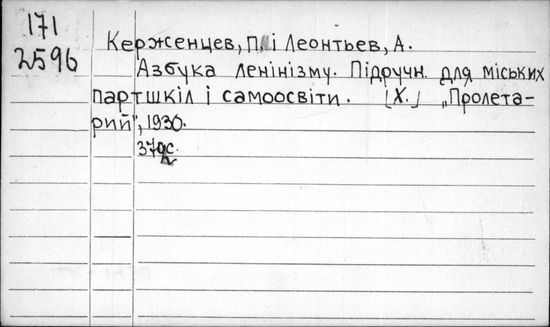 171
2596
Керженцев, П. і Леонтьев, А.
Азбука ленінізму. Підручн. для міських
партшкіл і самоосвіти. [Х.] „Пролета-
рий", 1930.
379с.